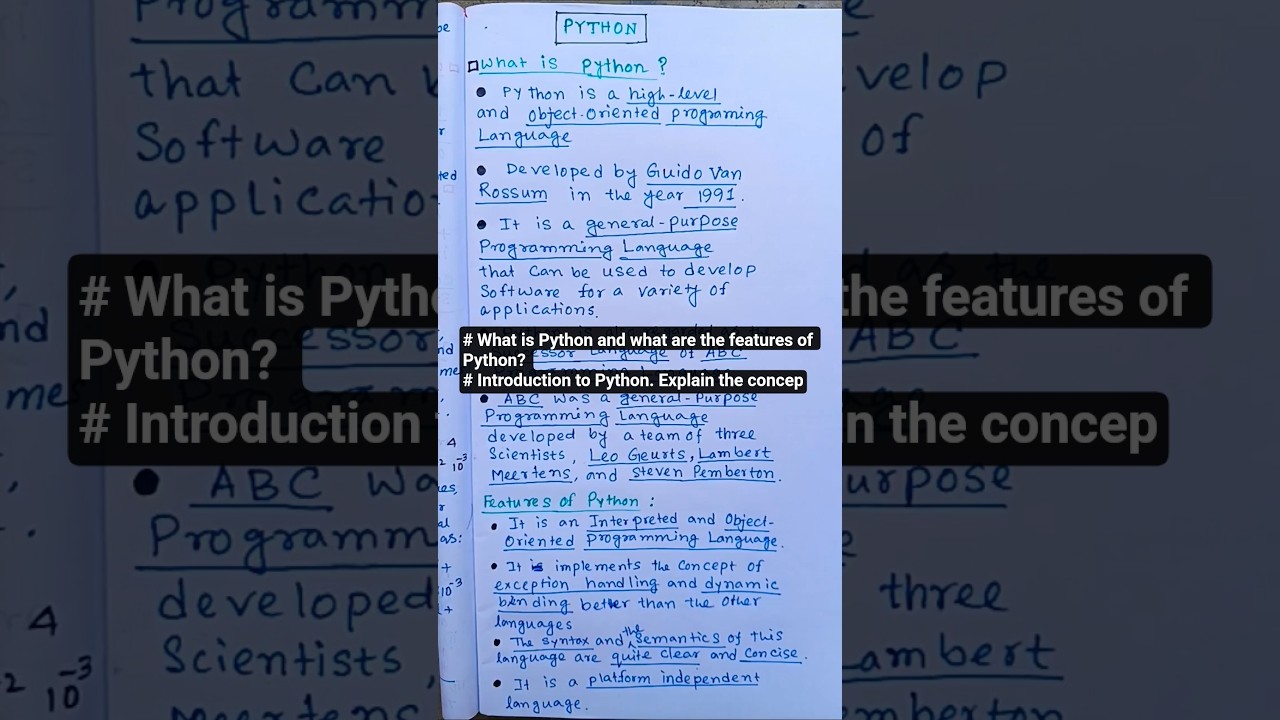 PYTHON
What is Python?
• Python is a high-level
and object-oriented programing
Language
• Developed by Guido Van
Rossum in the year 1991.
• It is a general-purpose
Programming Language
that can be used to develop
Software for a variety of
applications.
# What is Python and what are the features of
Python?
Language of ABC
# Introduction to Python. Explain the concep
• ABC was a general-purpose
Programming Language
developed by a team of three
Scientists, Leo Geurts, Lambert
Meertens, and Steven Pemberton.
Features of Python :
• It is an Interpreted and Object-
Oriented Programming Language.
• It is implements the concept of
exception handling and dynamic
binding better than the other
languages
• The syntax and the semantics of this
language are quite clear and concise.
• It is a platform independent
language.